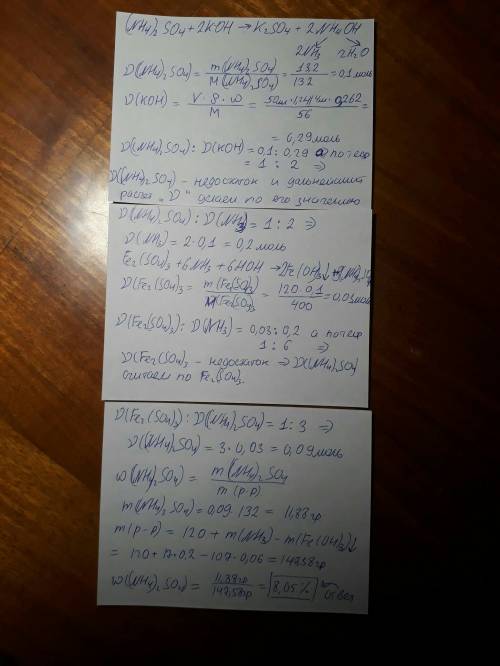 (NH4)2SO4 + 2KOH → K2SO4 + 2NH4OH
2NH3 2H2O
ν(NH4)2SO4 = m(NH4)2SO4 / M(NH4)2SO4 = 13,2 / 132 = 0,1 моль
ν(KOH) = V · ρ · ω / M = 50мл · 1,24г/мл · 0,262 / 56 =
= 0,29 моль
ν(NH4)2SO4 : ν(KOH) = 0,1 : 0,29 а по теор
= 1 : 2 ⇒
ν(NH4)2SO4 - недостаток и дальнейший
расчет "ν" делаем по его значению
ν(NH4)2SO4 : ν(NH3) = 1 : 2 ⇒
ν(NH3) = 2 · 0,1 = 0,2 моль
Fe2(SO4)3 + 6NH3 + 6HOH → 2Fe(OH)3↓ + 3(NH4)2SO4
ν(Fe2(SO4)3 = m(Fe2(SO4)3 / M(Fe2(SO4)3 = 120 · 0,1 / 400 = 0,03 моль
ν(Fe2(SO4)3 : ν(NH3) = 0,03 : 0,2 а по теор
1 : 6 ⇒
ν(Fe2(SO4)3 - недостаток ⇒ ν(NH4)2SO4
считаем по Fe2(SO4)3.
ν(Fe2(SO4)3 : ν(NH4)2SO4 = 1 : 3 ⇒
ν(NH4)2SO4 = 3 · 0,03 = 0,09 моль
ω(NH4)2SO4 = m(NH4)2SO4 / m(р-р)
m(NH4)2SO4 = 0,09 · 132 = 11,88гр
m(р-р) = 120 + m(NH3) - m(Fe(OH)3)↓
= 120 + 17 · 0,2 - 107 · 0,06 = 147,58гр
ω(NH4)2SO4 = 11,88гр / 147,58гр = 8,05% ← ответ